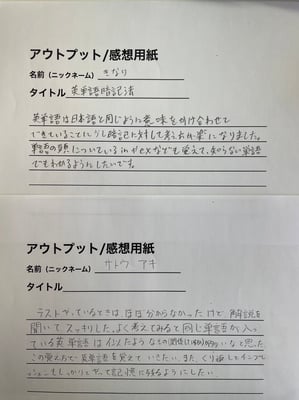 アウトプット/感想用紙
名前（ニックネーム） きなり
タイトル 英単語暗記法
英単語は日本語と同じように意味をかけ合わせて
できていることにより暗記に対して考え方が楽になりました。
単語の頭についている inやexなどを覚えて、知らない単語
でもわかるようにしたいです。
アウトプット/感想用紙
名前（ニックネーム） サトウ アキ
タイトル
テストやっているときは ほぼ分からなかったけど 解説を
聞いて スッキリした。よく考えてみると 同じ単語が入っ
ている英単語は 似たようなもの だなと思った
この覚え方で 英単語を覚えて いきたい。また、くり返しインプレ
ッションもしっかりとやって 記憶に残るようにしたい。